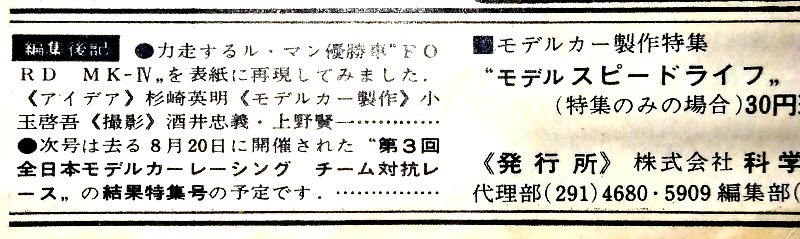 編集後記 ●力走するル・マン優勝車“FO
RD MK-Ⅳ„を表紙に再現してみました.
《アイデア》杉崎英明《モデルカー製作》小
玉啓吾《撮影》酒井忠義・上野賢一…………
●次号は去る8月20日に開催された“第3回
全日本モデルカーレーシング チーム対抗レ
ース„の結果特集号の予定です. ……………
■モデルカー製作特集
“モデルスピードライフ„
(特集のみの場合)30円
《発行所》 株式会社 科学
代理部(291)4680・5909 編集部(